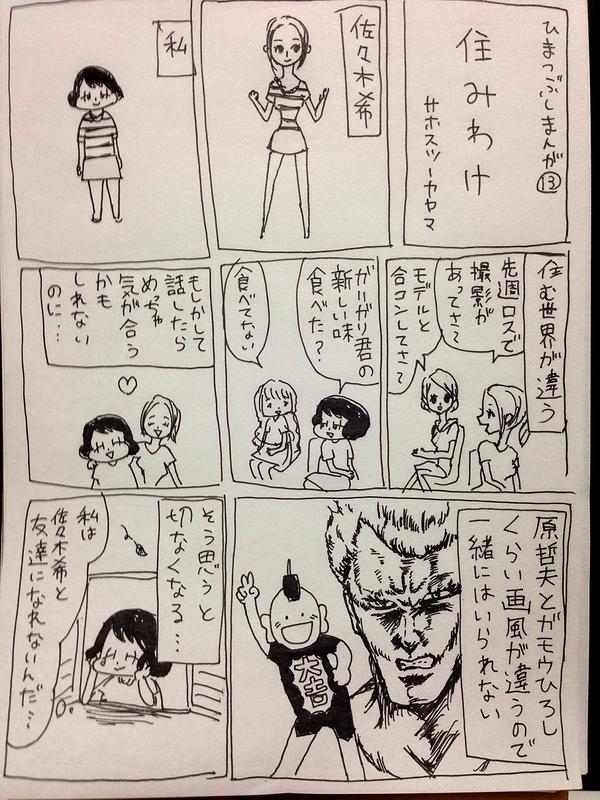 ひまつぶしまんが⑬
住みわけ
サホスツーカヤマ
佐々木希
私
住む世界が違う
先週ロスで
撮影が
あってさ〜
モデルと
合コンしてさ〜
ガリガリ君の
新しい味
食べた？
食べてない
もしかして
話したら
めっちゃ
気が合う
かも
しれない
のに…
原哲夫とガモウひろし
くらい画風が違うので
一緒にはいられない
大吉
そう思うと
切なくなる…
私は
佐々木希と
友達になれないんだ…